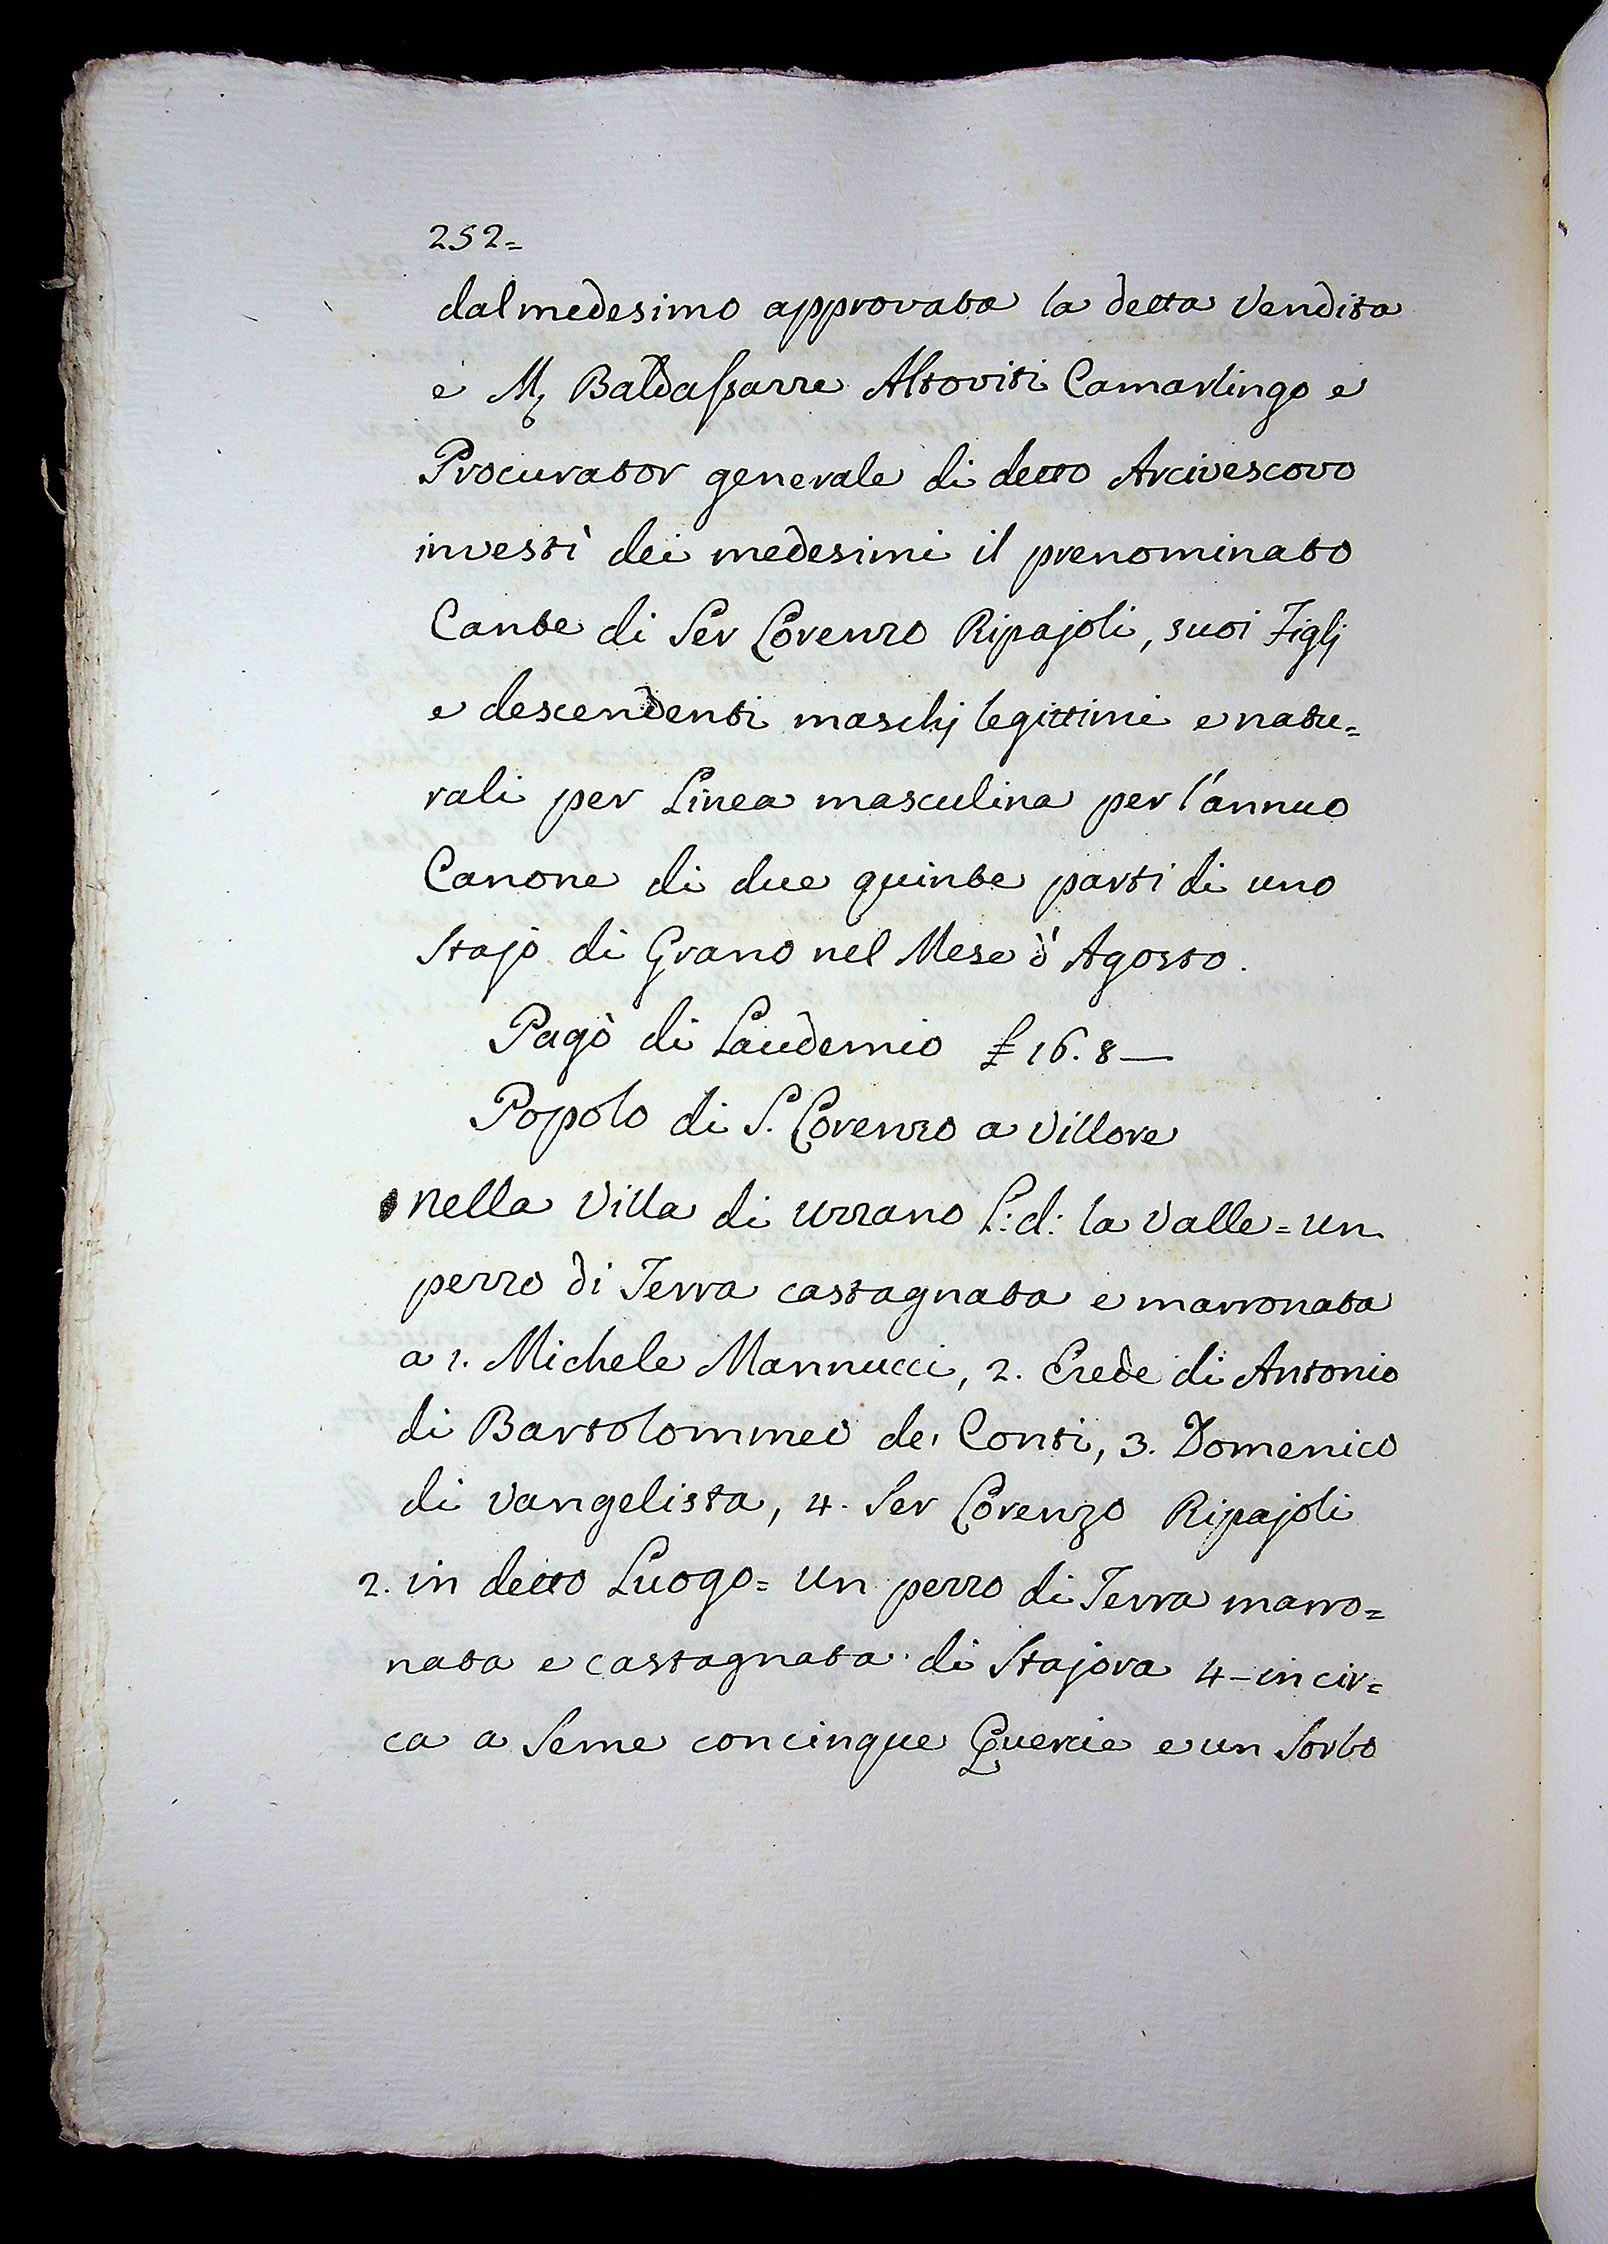 252=
dal medesimo approvata la detta Vendita
e M. Baldassarre Altoviti Camarlingo e
Procurator generale di detto Arcivescovo
investì dei medesimi il prenominato
Cante di Ser Lorenzo Ripajoli, suoi Figlj
e descendenti maschj legittimi e natu=
rali per Linea masculina per l'annuo
Canone di due quinte parti di uno
Stajo di Grano nel Mese d'Agosto.
Pagò di Laudemio £ 16. 8 —
Popolo di S. Lorenzo a Villore
nella Villa di Urzano L: d: la Valle = un
pezzo di Terra castagnata e marronata
a 1. Michele Mannucci, 2. Erede di Antonio
di Bartolommeo de' Conti, 3. Domenico
di Vangelista, 4. Ser Lorenzo Ripajoli
2. in detto Luogo = un pezzo di Terra marro=
nata e castagnata di Stajora 4 – in cir=
ca a Seme con cinque Quercie e un Sorbo